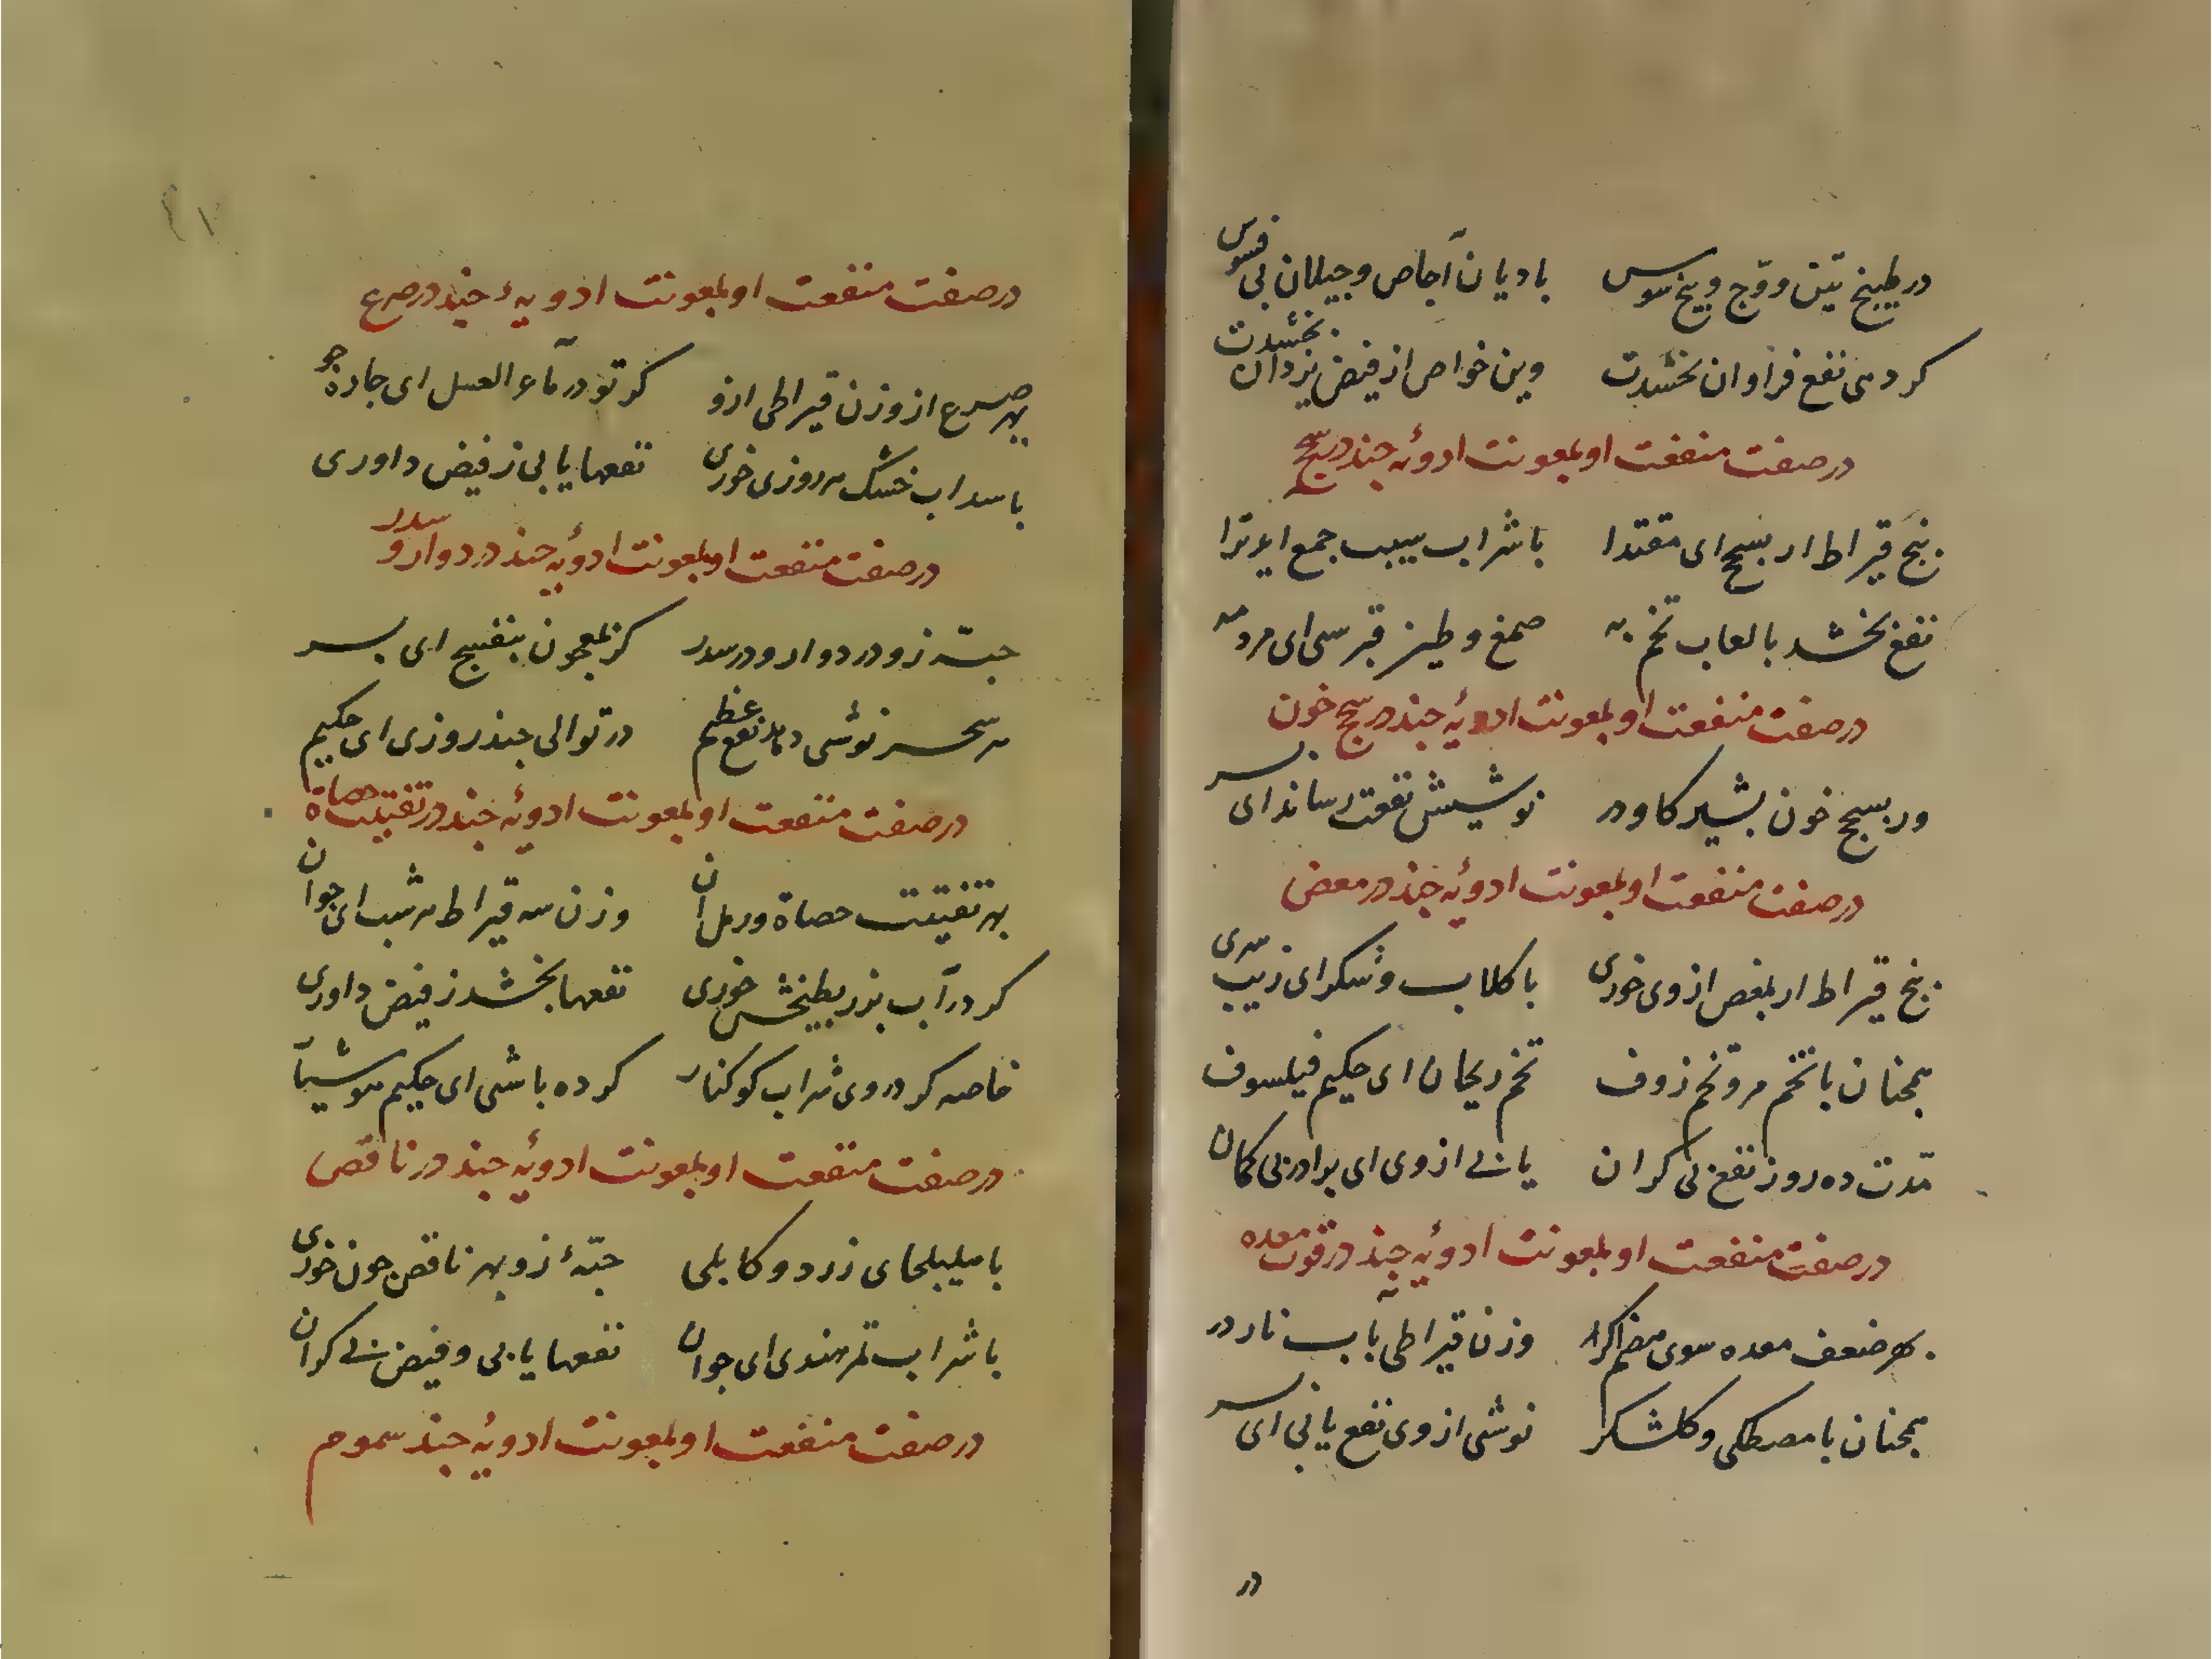 در طبیخ تین و وج و بیخ سوس بادیان اجاص و جیلان بی فسوس
کر دمی نفع فراوان بخشدت وین خواص از فیض یزدان بخشدت
در صفت منفعت او بمعونت ادویه چند در سحج
پنج قیراط ار بسحج ای مقتدا با شراب سیب جمع اید ترا
نفع بخشد با لعاب تخم به صمغ و طین قبرسی ای مرد مه
در صفت منفعت او بمعونت ادویهٔ چند در سحج خون
ور بسحج خون بشیر کاو در نوشیش نفعت رساند ای پسر
در صفت منفعت او بمعونت ادویهٔ چند در معض
پنج قیراط ار بمغص از وی خوری با کلاب و شکر ای زیب سری
همچنان با تخم مرو تخم زوف تخم ریحان ای حکیم فیلسوف
مدت ده روز نفع بی کران یابی از وی ای برادر بی کمان
در صفت منفعت او بمعونت ادویهٔ چند در قوت معده
بهر ضعف معده سوی هضم وزن قیراطی باب نار در
همچنان با مصطکی و کلشکر نوشی از وی نفع یابی ای پسر
در
در صفت منفعت او بمعونت ادویهٔ چند در صرع
بهر صرع از وزن قیراطی ازو کر تو در ماء العسل ای چاره جو
با سداب خشک هر روزی خوری نفعها یابی ز فیض داوری
در صفت منفعت او بمعونت ادویهٔ چند در دوار و سدر
حبهٔ زو در دوار و در سدر کز بمعجون بنفسج ای پسر
هر سحر نوشی دهد نفع عظیم در توالی چند روزی ای حکیم
در صفت منفعت او بمعونت ادویهٔ چند در تفتیت حصاة
بهر تفتیت حصاة و رمل ان وزن سه قیراط هر شب ای جوان
کر در آب بزر بطیخش خوری نفعها بخشد ز فیض داوری
خاصه کر در وی شراب کوکنار کرده باشی ای حکیم هوشیار
در صفت منفعت او بمعونت ادویهٔ چند در ناقص
با هلیلهای زرد و کابلی حبهٔ زو بهر ناقص چون خوری
با شراب تمر هندی ای جوان نفعها یابی و فیض بی کران
در صفت منفعت او بمعونت ادویهٔ چند سموم